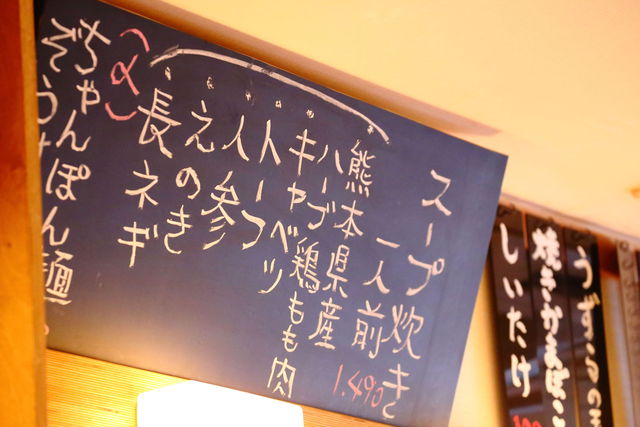 スープ炊き
一人前 1.490
熊本県産
ハーブ鶏もも肉
キャベツ
トーフ
人参
えのき
長ネギ
(〆)
ちゃんぽん麺
ぞう
うずらの
焼きかまぼこ
しいたけ